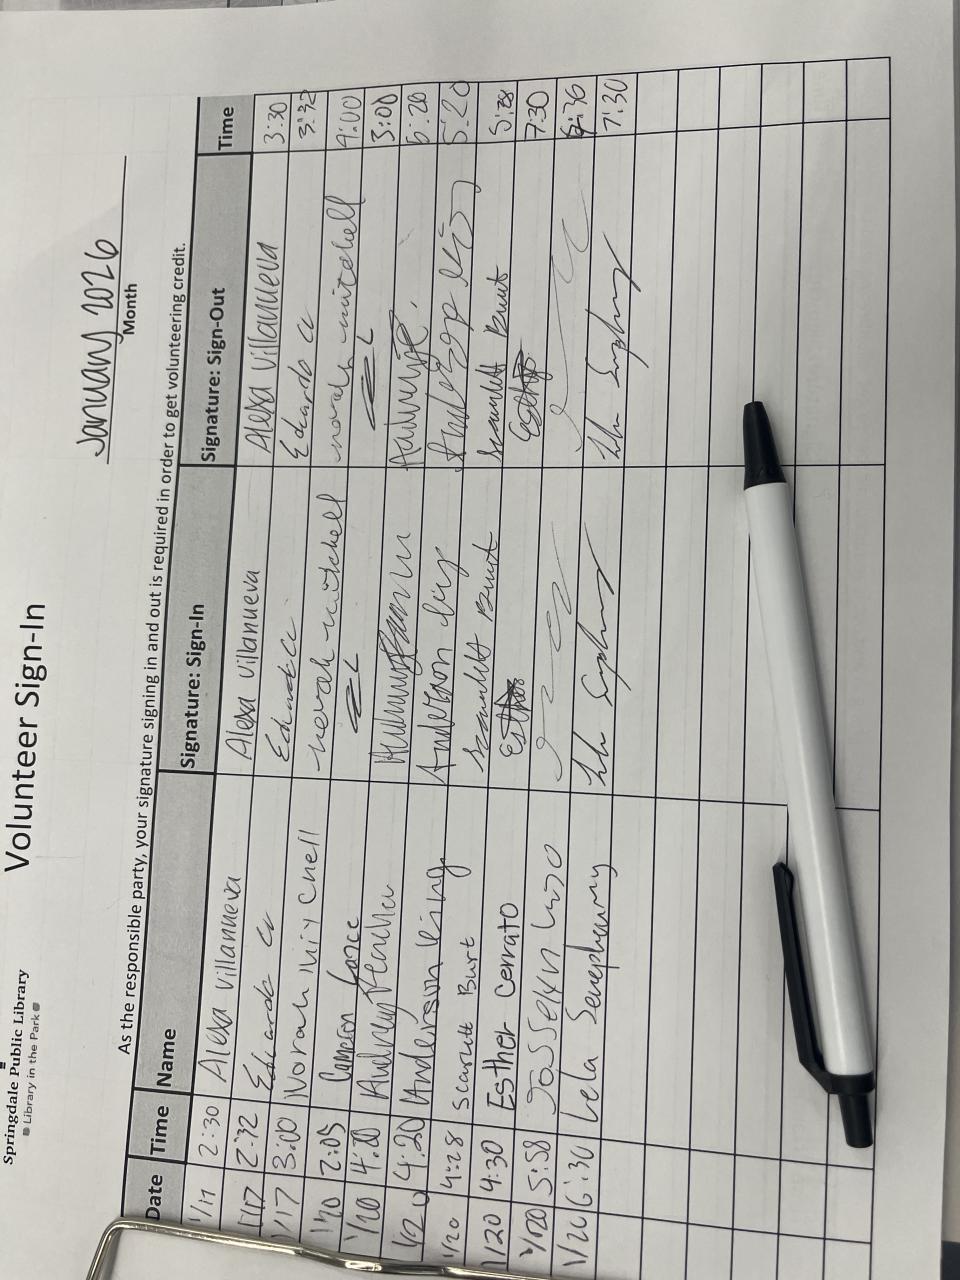 Springdale Public Library
Library in the Park
Volunteer Sign-In
January 2026
Month
As the responsible party, your signature signing in and out is required in order to get volunteering credit.
Date Time Name Signature: Sign-In Signature: Sign-Out Time
1/17 2:30 Alexa Villanueva Alexa Villanueva Alexa Villanueva 3:30
1/17 2:32 Eduardo Eduardo 3:32
1/17 3:00 Norah Mitchell norah mitchell norah mitchell 4:00
1/20 2:05 Cameron 3:00
1/20 4:20 Audrey
1/20 4:20 Anderson King Anderson King 5:20
1/20 4:28 Scarlett Burt Scarlett Burt Scarlett Burt 5:28
1/20 4:30 Esther Cerrato Esther 7:30
1/20 5:58 Josselyn
1/20 6:30 Lela 7:30